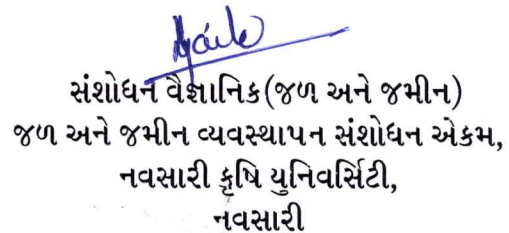 સંશોધન વૈજ્ઞાનિક(જળ અને જમીન)
જળ અને જમીન વ્યવસ્થાપન સંશોધન એકમ,
નવસારી કૃષિ યુનિવર્સિટી,
નવસારી